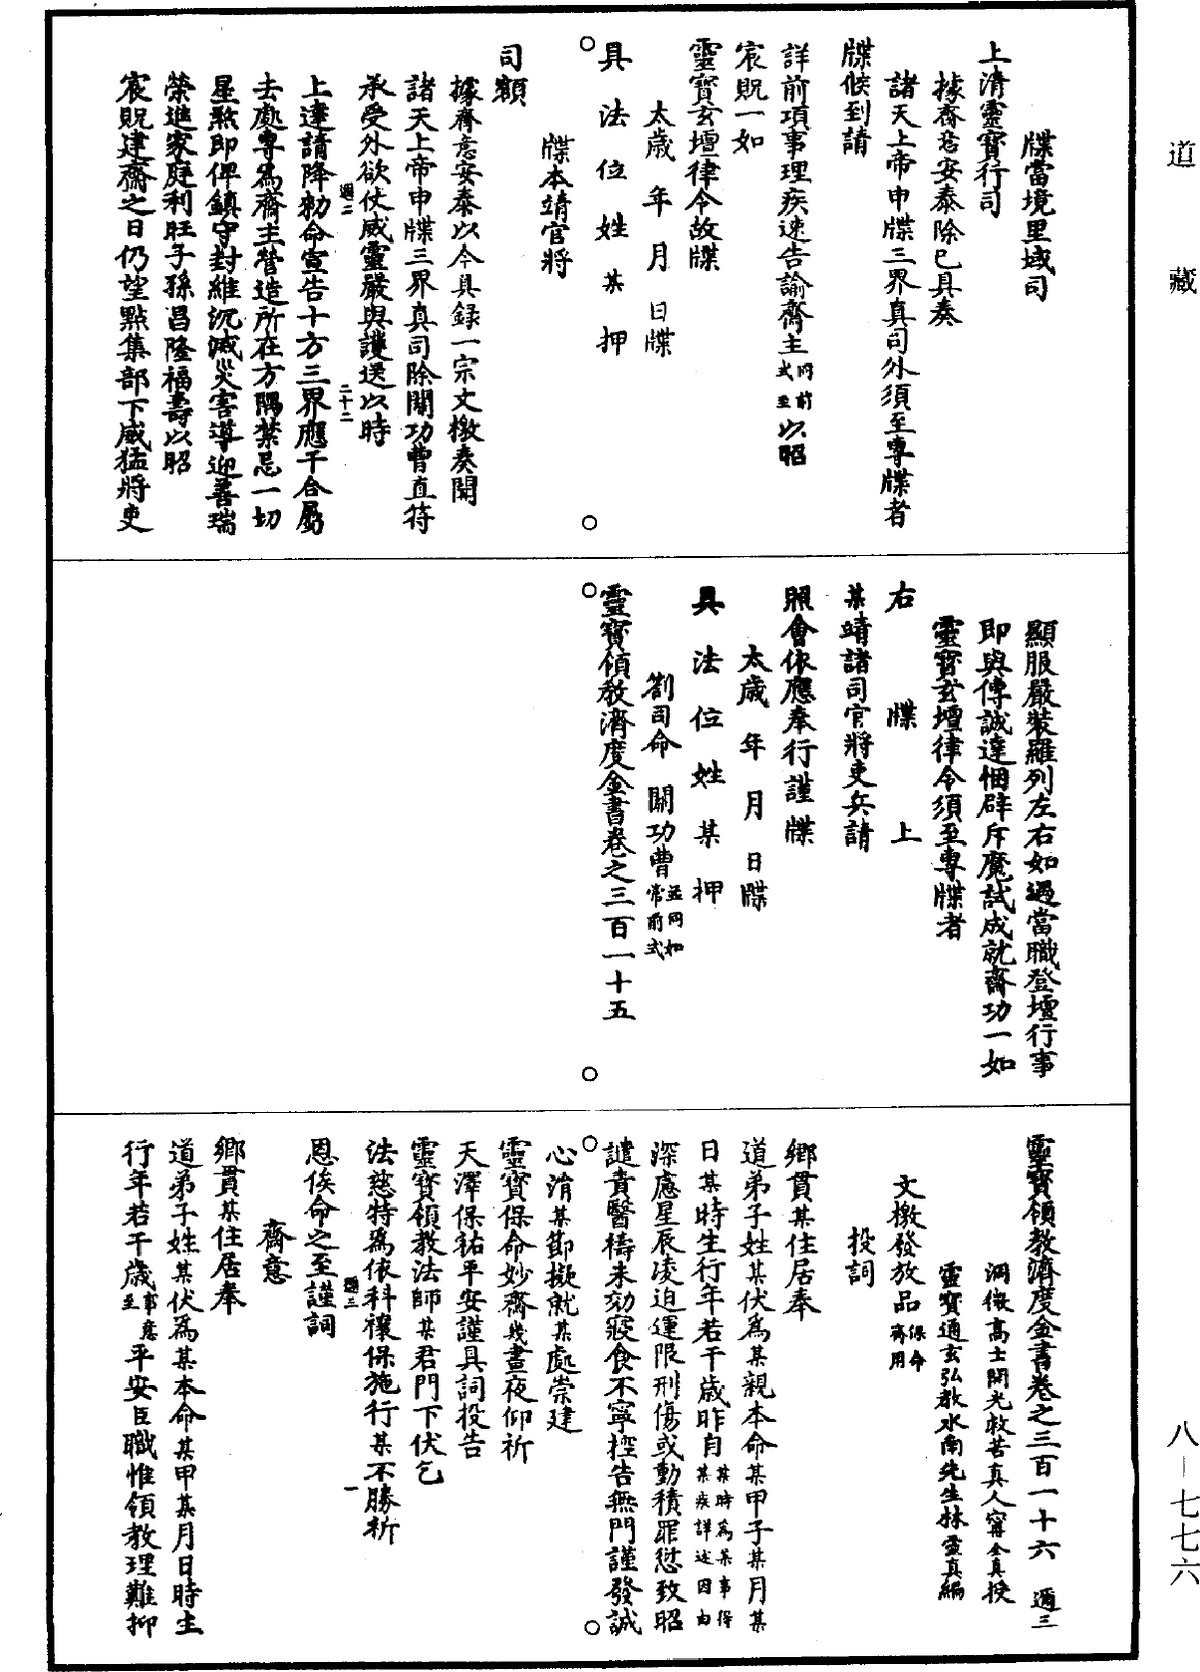 道藏
牒當境里域司
上清靈寶行司
據齋意安泰除已具奏
諸天上帝申牒三界真司外須至專牒者
牒候到請
詳前項事理疾速告諭齋主同前式至以昭
宸貺一如
靈寶玄壇律令故牒
太歲年月日牒
具法位姓某押
牒本靖官將
司額
據齋意安泰以今具錄一宗文檄奏聞
諸天上帝申牒三界真司除關功曹直符
承受外欲仗威靈嚴與護送以時
通二
二十二
上達請降勑命宣告十方三界應干合屬
去處專為齋主營造所在方隅禁忌一切
星煞即俾鎮守封維沉滅災害導迎善瑞
榮進家庭利旺子孫昌隆福壽以昭
宸貺建齋之日仍望點集部下威猛將吏
顯服嚴裝羅列左右如遇當職登壇行事
即與傳誠達悃辟斥魔試成就齋功一如
靈寶玄壇律令須至專牒者
右牒上
某靖諸司官將吏兵請
照會依應奉行謹牒
太歲年月日牒
具法位姓某押
劄司命 關功曹並同如常前式
靈寶領教濟度金書卷之三百一十五
靈寶領教濟度金書卷之三百一十六 通三
洞微高士開光救苦真人甯全真授
靈寶通玄弘教水南先生林靈真編
文檄發放品保命齋用
投詞
鄉貫某住居奉
道弟子姓某伏為某親本命某甲子某月某
日某時生行年若干歲昨自某時為某事得某疾詳述因由
深慮星辰凌迫運限刑傷或動積罪愆致昭
譴責醫禱未効寢食不寧控告無門謹發誠
心涓某節擬就某處崇建
靈寶保命妙齋幾晝夜仰祈
天澤保祐平安謹具詞投告
靈寶領教法師某君門下伏乞
法慈特為依科禳保施行某不勝祈
通三
一
恩俟命之至謹詞
齋意
鄉貫某住居奉
道弟子姓某伏為某本命某甲某月日時生
行年若干歲事意至平安臣職惟領教理難抑
八-七七六